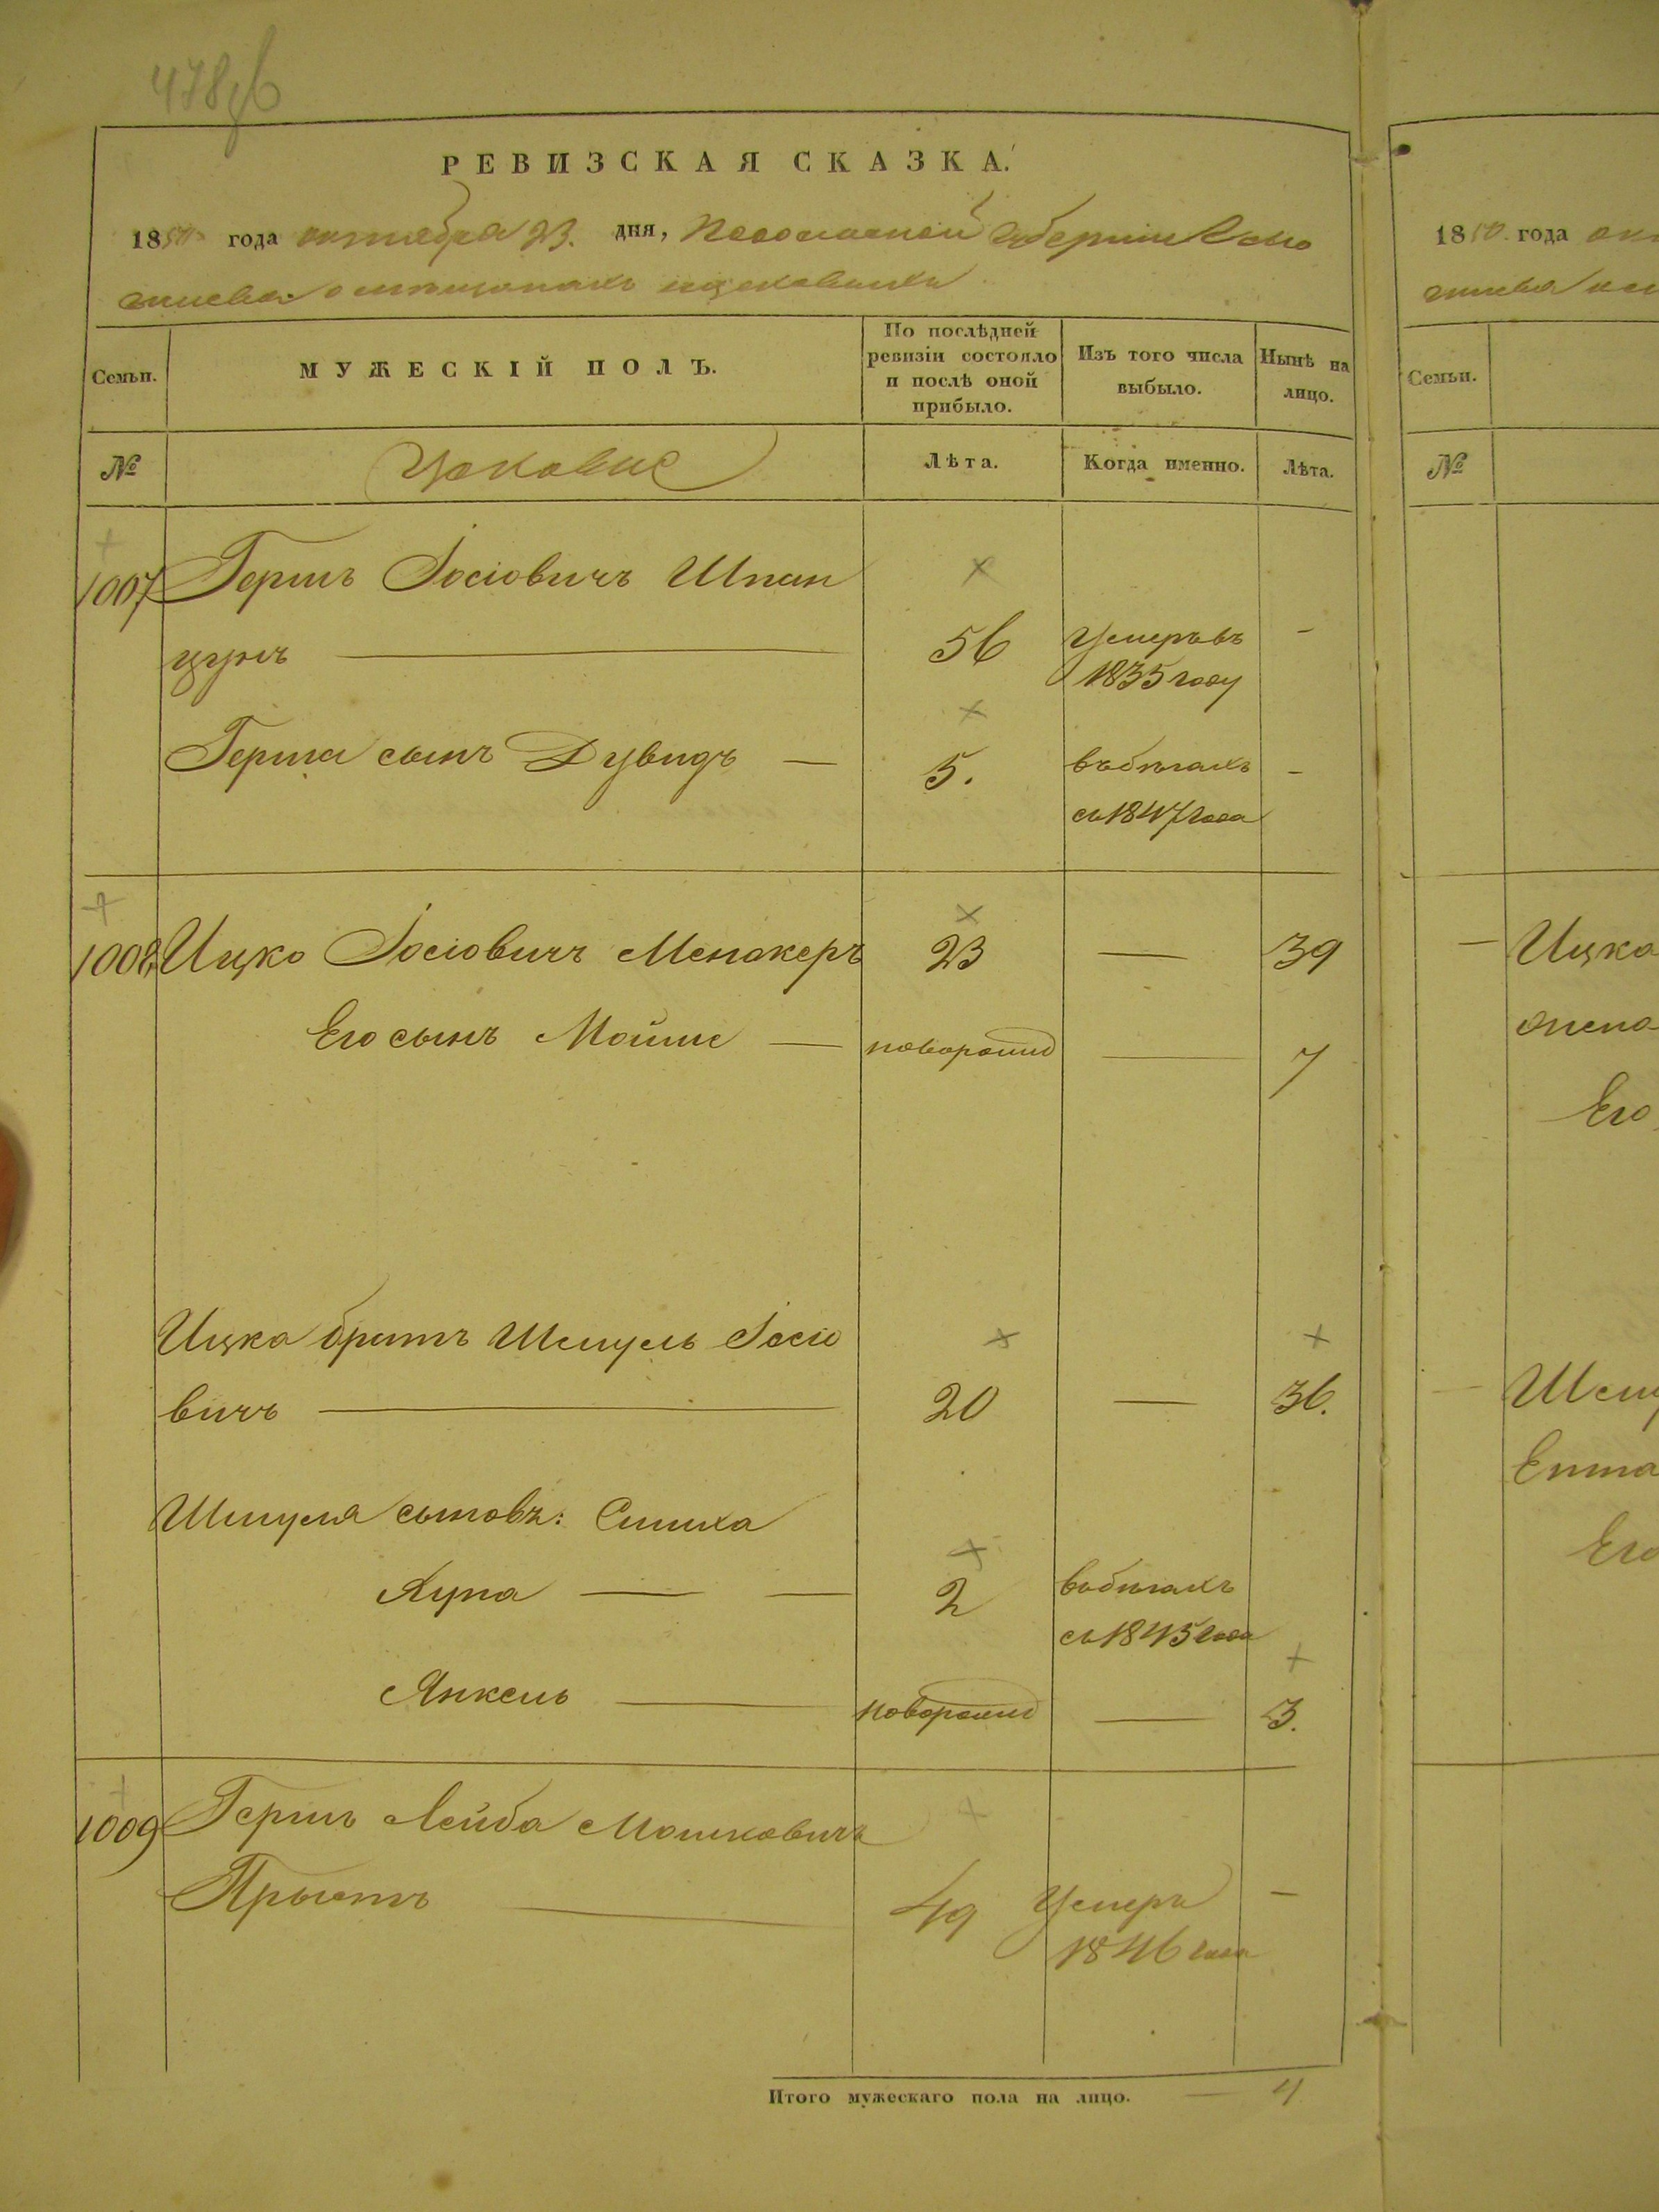 478
РЕВИЗСКАЯ СКАЗКА.
1850 года октября 23. дня, Подольской Губернии
о мещанахъ
Семьи.
МУЖЕСКІЙ ПОЛЪ.
По послѣдней ревизіи состояло и послѣ оной прибыло.
Изъ того числа выбыло.
Нынѣ на лицо.
№
Лѣта.
Когда именно.
Лѣта.
1007 Гершъ Іосіовичъ Шпан
цунъ — 56 Умеръ въ —
1835 году
Герша сынъ Дувидъ — 5. въ бѣгахъ —
съ 1847 года
1008 Ицко Іосіовичъ Менакеръ 23 — 39
Его сынъ Мойше — новорожд — 7
Ицка братъ Шмуель Іосіо
вичъ — 20 — 36.
Шмуеля сыновъ: Симха
Лупа — — 2 въ бѣгахъ
съ 1845 года
Янкель — новорожд — 3.
1009 Гершъ Лейба Мошковичъ
49 Умеръ —
1846 года
Итого мужескаго пола на лицо. — 4
1850. года
Семьи.
№
— Ицка
жена
Его
— Шму
Его